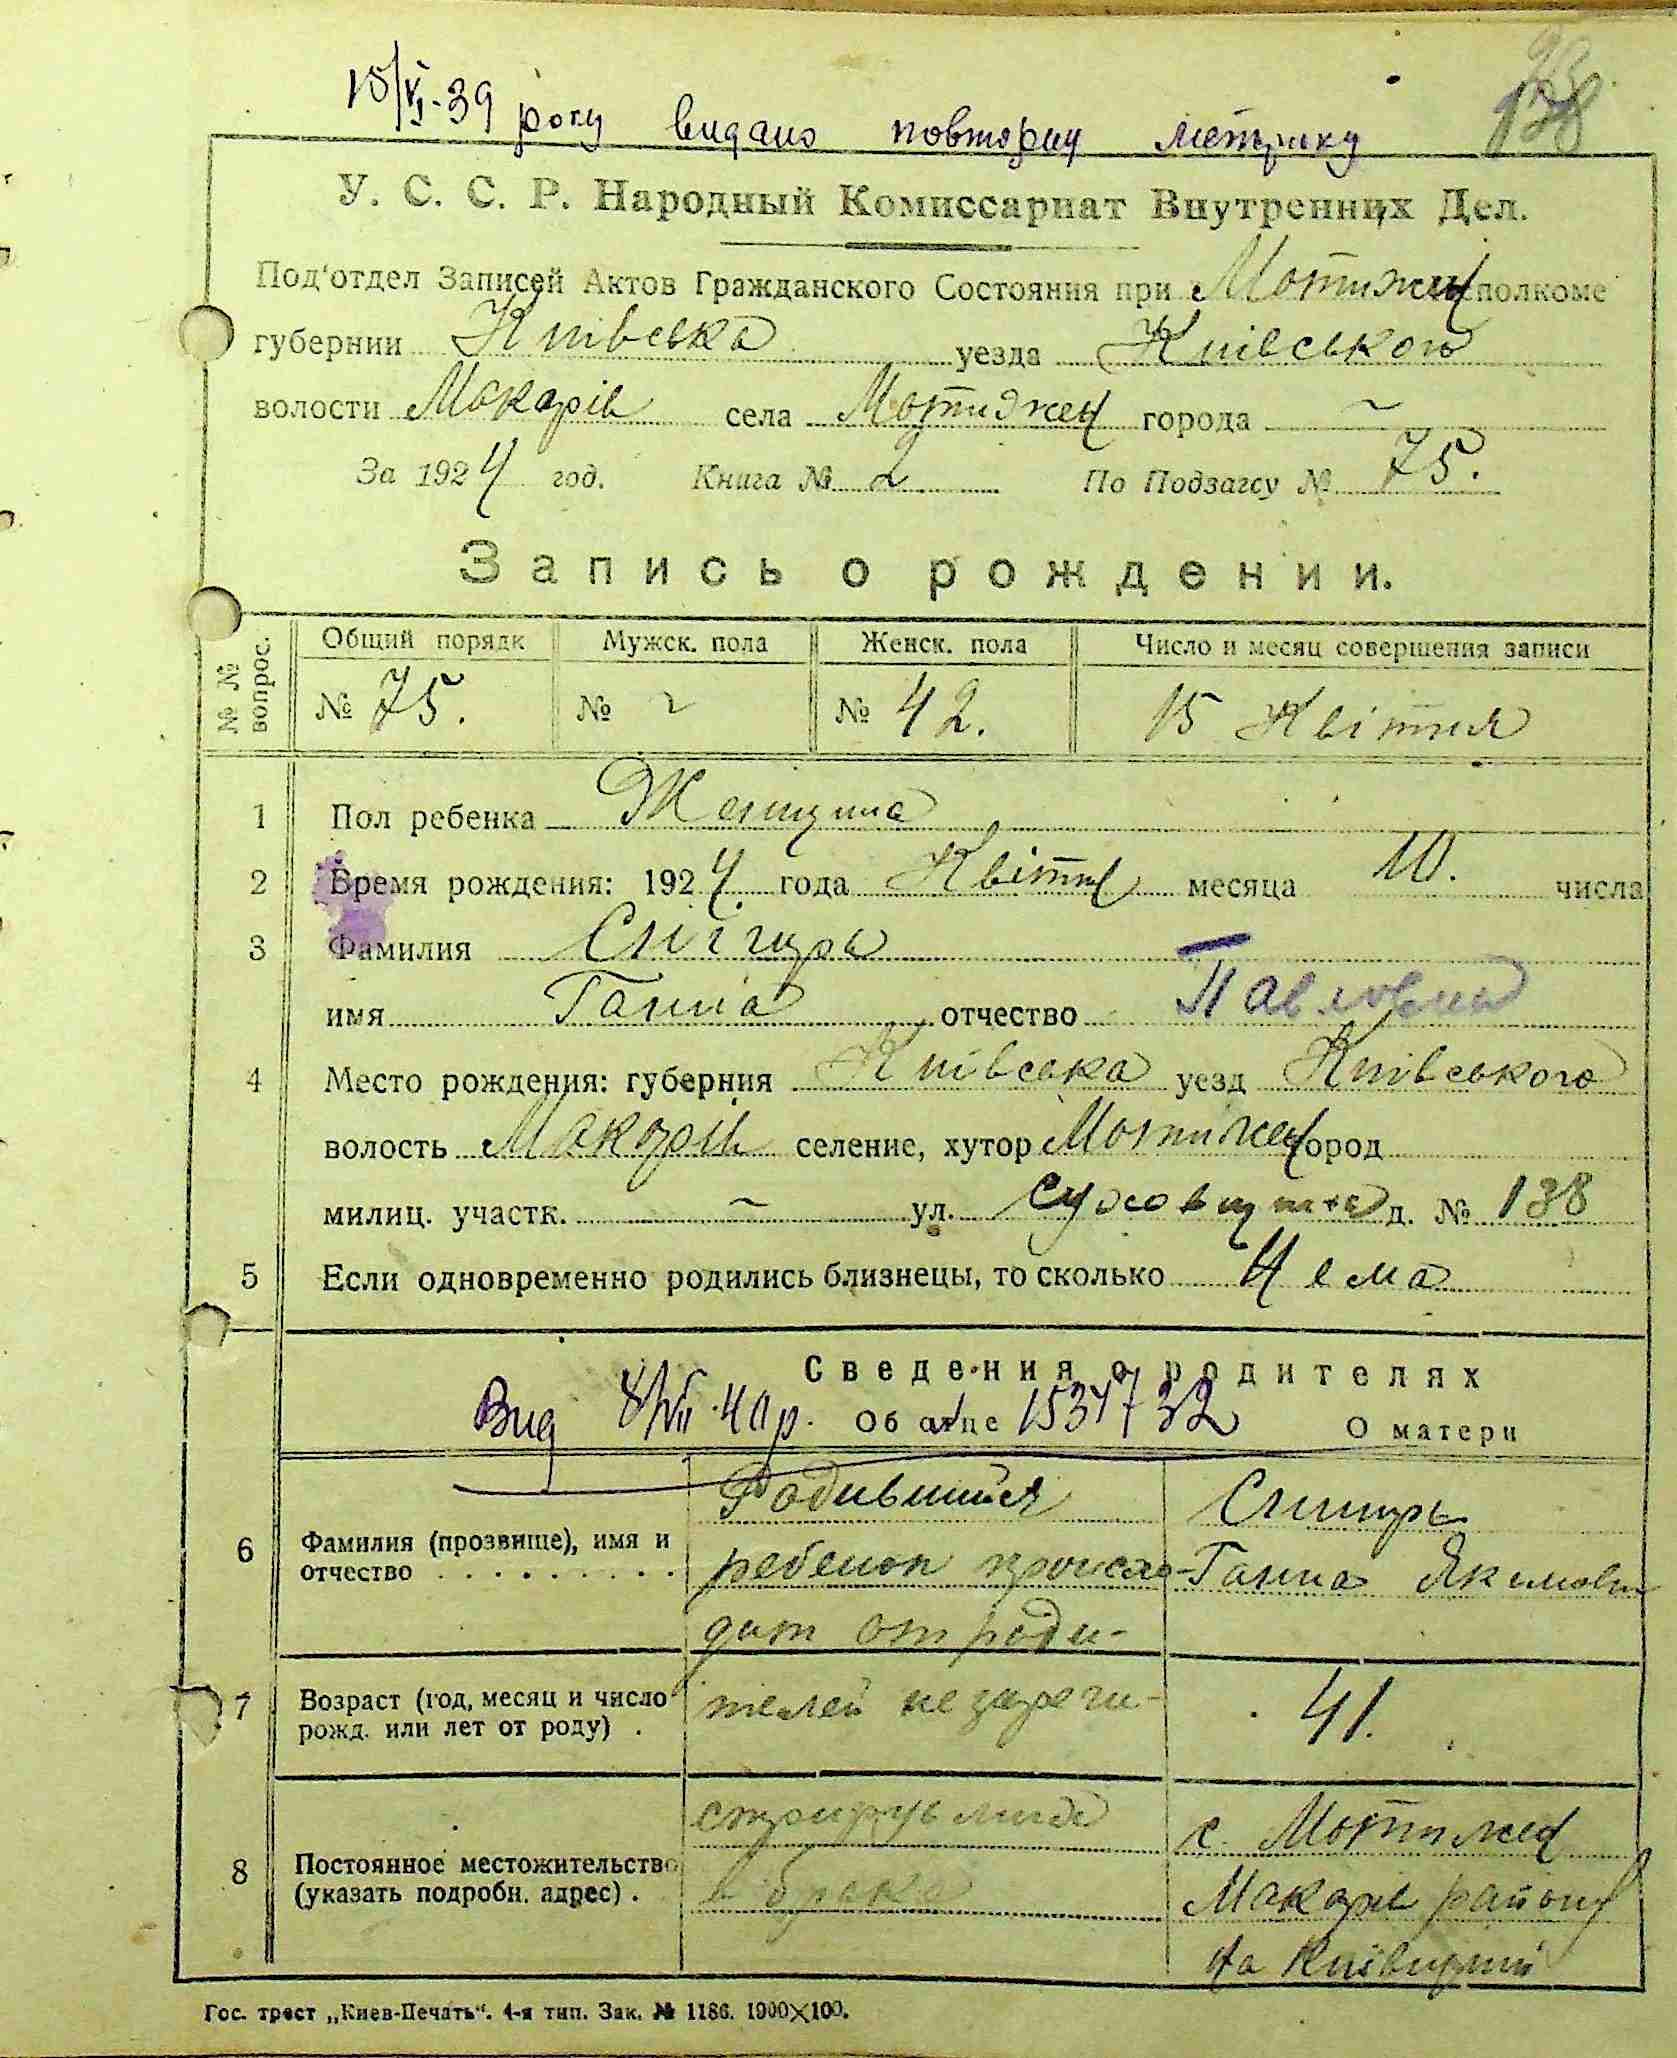 15/VI-39 року видано повторну метрику
138
У. С. С. Р. Народный Комиссариат Внутренних Дел.
Под'отдел Записей Актов Гражданского Состояния при Мотижен исполкоме
губернии Київська уезда Київського
волости Макарів села Мотижен города ~
За 1924 год. Книга № 2 По Подзагсу № 75.
Запись о рождении.
№ № вопрос. Общий порядк Мужск. пола Женск. пола Число и месяц совершения записи
№ 75. № ~ № 42. 15 Квітня
1 Пол ребенка Женщина
2 Время рождения: 1924 года Квітн месяца 10. числа
3 Фамилия Снігирь
имя Ганна отчество Павловна
4 Место рождения: губерния Київська уезд Київського
волость Макарів селение, хутор Мотижен город
милиц. участк. ~ ул. д. № 138
5 Если одновременно родились близнецы, то сколько Нема
Сведения о родителях
Вид 4/VII-40р. Об отце 1534732 О матери
6 Фамилия (прозвище), имя и отчество
Родившийся Снигирь
ребенок происхо- Ганна Якимовн
дит от роди-
7 Возраст (год, месяц и число рожд. или лет от роду)
телей не зареги- 41.
8 Постоянное местожительство (указать подробн. адрес)
в брака с. Мотижен
Макарів району
на Київщині
Гос. трест „Киев-Печать“. 4-я тип. Зак. № 1186. 1900×100.